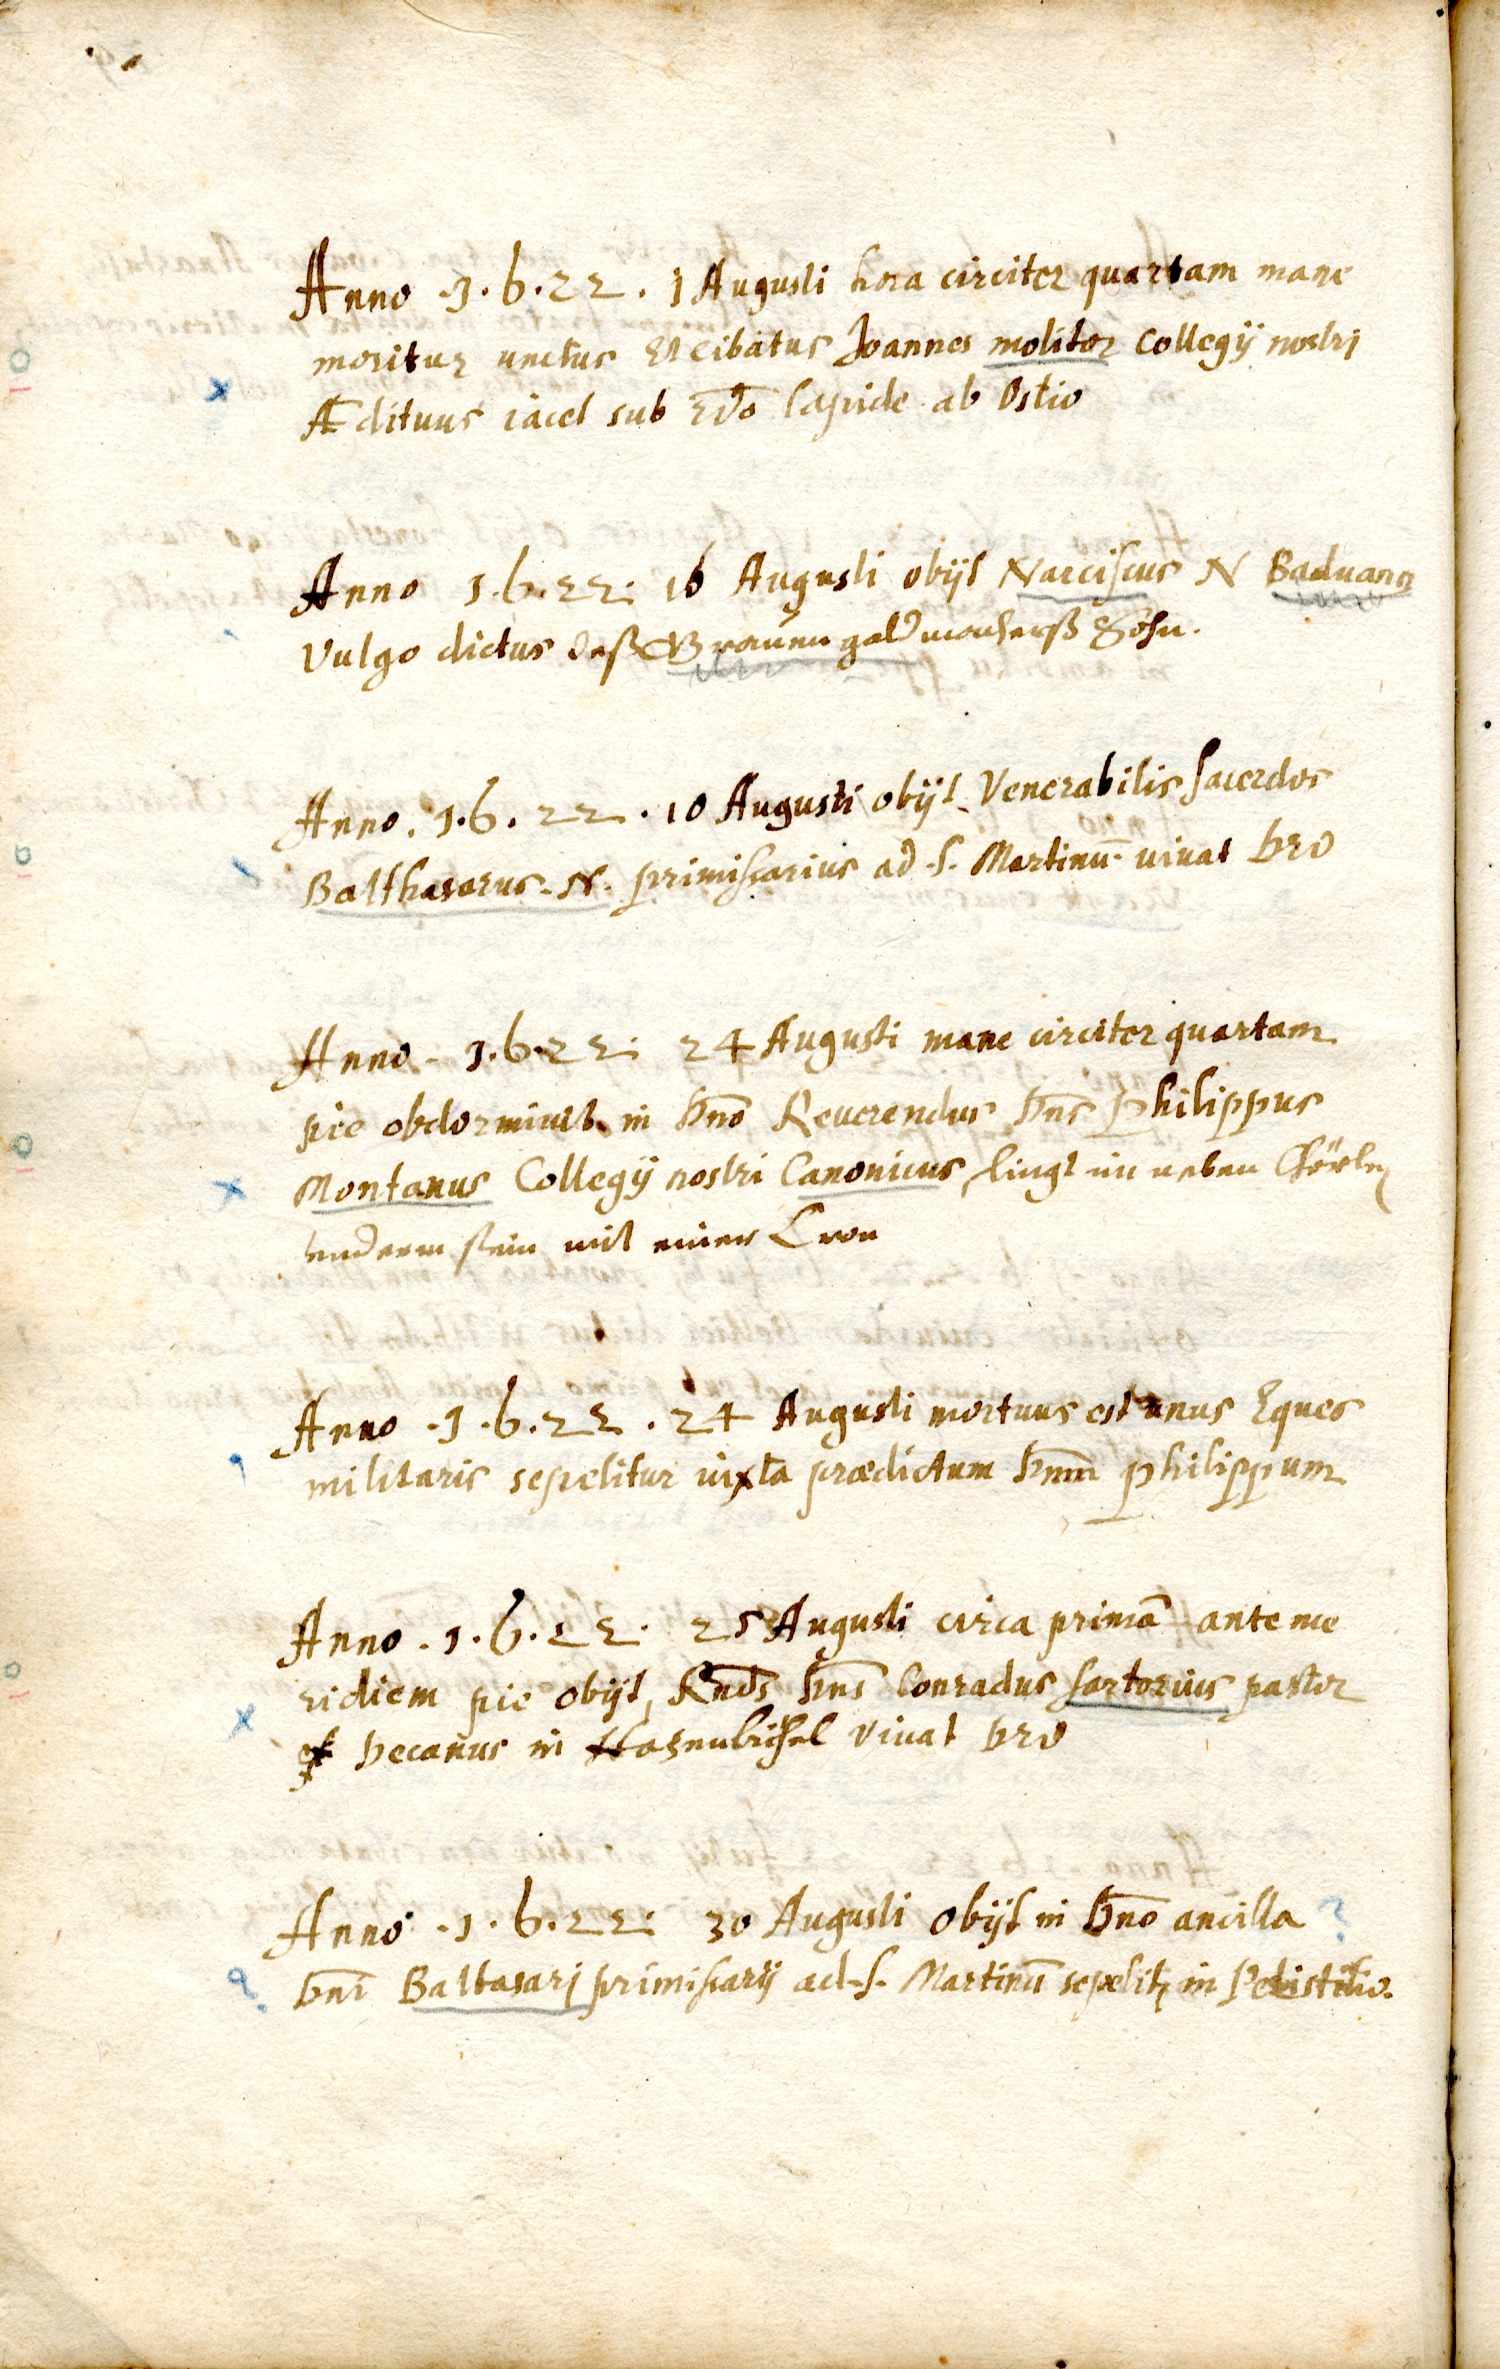 Anno .1.6.22. 1 Augusti hora circiter quartam mane
moritur unctus et cibatus Joannes molitor Collegÿ nostri
Ædituus iacet sub 2do lapide ab Ostio
Anno 1.6.22. 16 Augusti obÿt Narciscus N Baduanꝰ
Vulgo dictus deß Grauen goldmachers Sohn.
Anno. 1.6.22. 10 Augusti obÿt Venerabilis sacerdos
Balthasarus. N. primissarius ad S. Martinū vivat Deo
Anno. 1.6.22. 24 Augusti mane circiter quartam
pie obdormivit in Dno Reuerendus Dns Philippus
Montanus Collegÿ nostri Canonicus, ligt im neben
stein mit einer Cron
Anno .1.6.22. 24 Augusti mortuus est unus Eques
militaris sepelitur iuxta prædictum Dnm Philippum
Anno .1.6.22. 25 Augusti circa primā ante me
ridiem pie obÿt, Rnds Dns Conradus sartorius pastor
et Decanus in Hasenbühel Vivat Deo
Anno .1.6.22. 30 Augusti obÿt in Dno ancilla
Dni Baltasarj primissarÿ ad S. Martinū sepelit in